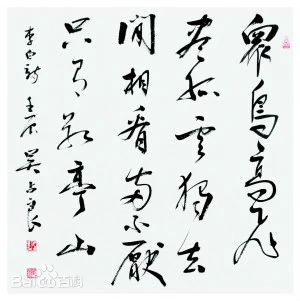 眾鳥高飛
盡孤雲獨去
閒相看兩不厭
只有敬亭山
李白詩 壬辰 吳占良
Baidu百科